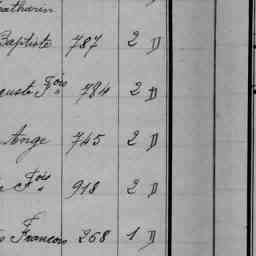 Catharin
Baptiste 787 2 D
guste Fois 784 2 D
Ange 745 2 D
Fois 918 2 D
s Francois 268 1 D